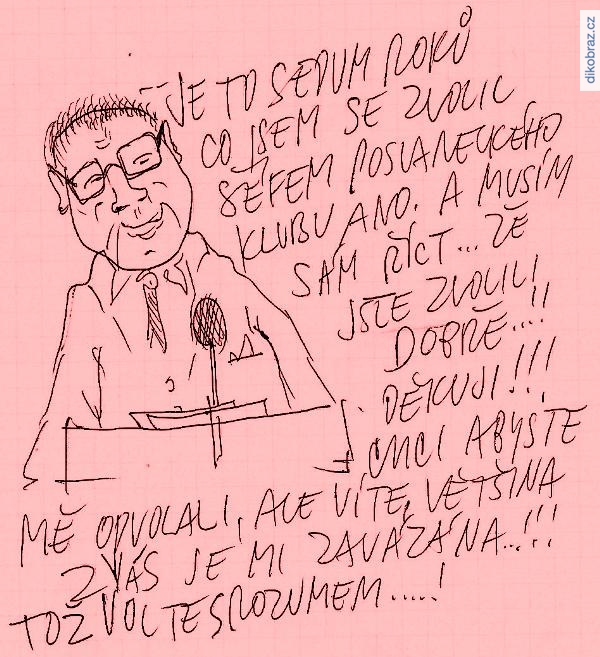 JE TO SEDUM ROKŮ
CO JSEM SE ZVOLIL
ŠÉFEM POSLANECKÉHO
KLUBU ANO. A MUSÍM
SÁM ŘÍCT... ŽE
JSTE ZVOLILI
DOBŘE...!!
DĚKUJI!!!
CHCI ABYSTE
MĚ ODVOLALI, ALE VÍTE, VĚTŠINA
Z VÁS JE MI ZAVÁZÁNA...!!!
TOŽ VOLTE S ROZUMEM.....!
dikobraz.cz